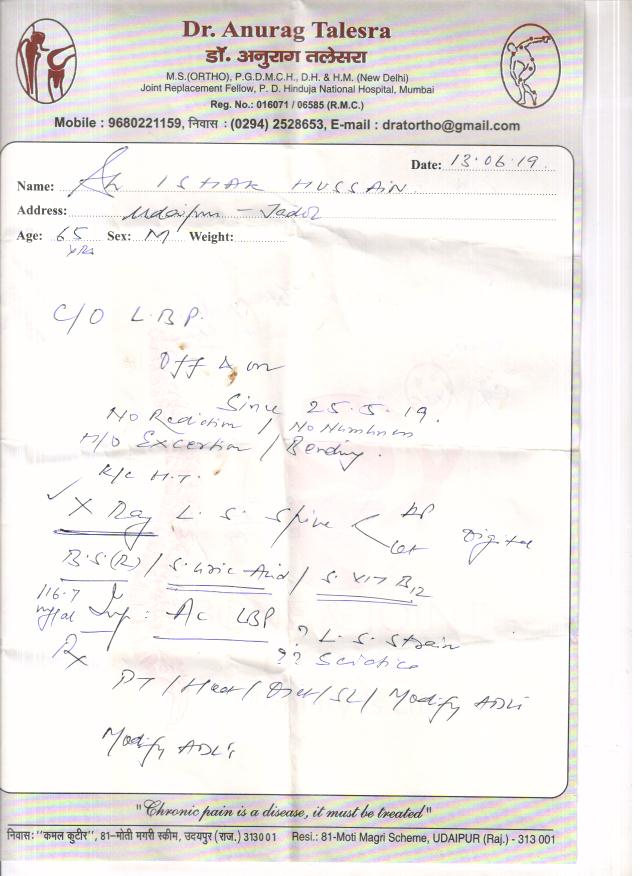 Dr. Anurag Talesra
डॉ. अनुराग तलेसरा
M.S.(ORTHO), P.G.D.M.C.H., D.H. & H.M. (New Delhi)
Joint Replacement Fellow, P. D. Hinduja National Hospital, Mumbai
Reg. No.: 016071 / 06585 (R.M.C.)
Mobile : 9680221159, निवास : (0294) 2528653, E-mail : dratortho@gmail.com
Date: 13.06.19.
Name: Sh ISHAK HUSSAIN
Address: Udaipur - Jadol
Age: 65 yrs Sex: M Weight:
C/O L.B.P.
Off & on
Since 25.5.19.
No Radiction / No Numbness
H/O Excertion / Bending.
K/C H.T.
✓ X Ray L. S. Spine < AP
Lat Digital
B.S.(R) / S. Uric Acid / S. VIT B12
116.7 mg/dl
Imp : Ac LBP ? L. S. Strain
?? Sciatica
Rx
PT / Heat / Diet / SL / Modify ADLs
Modify ADL's
"Chronic pain is a disease, it must be treated"
निवास: "कमल कुटीर", 81-मोती मगरी स्कीम, उदयपुर (राज.) 313001 Resi.: 81-Moti Magri Scheme, UDAIPUR (Raj.) - 313 001